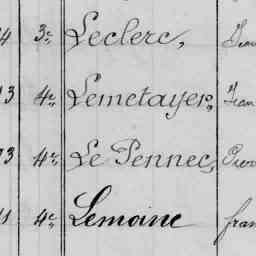 4 3e Leclerc,
3 4e Lemetayer, Jean
3 4e Le Pennec, Pierr
1 4e Lemoine fran